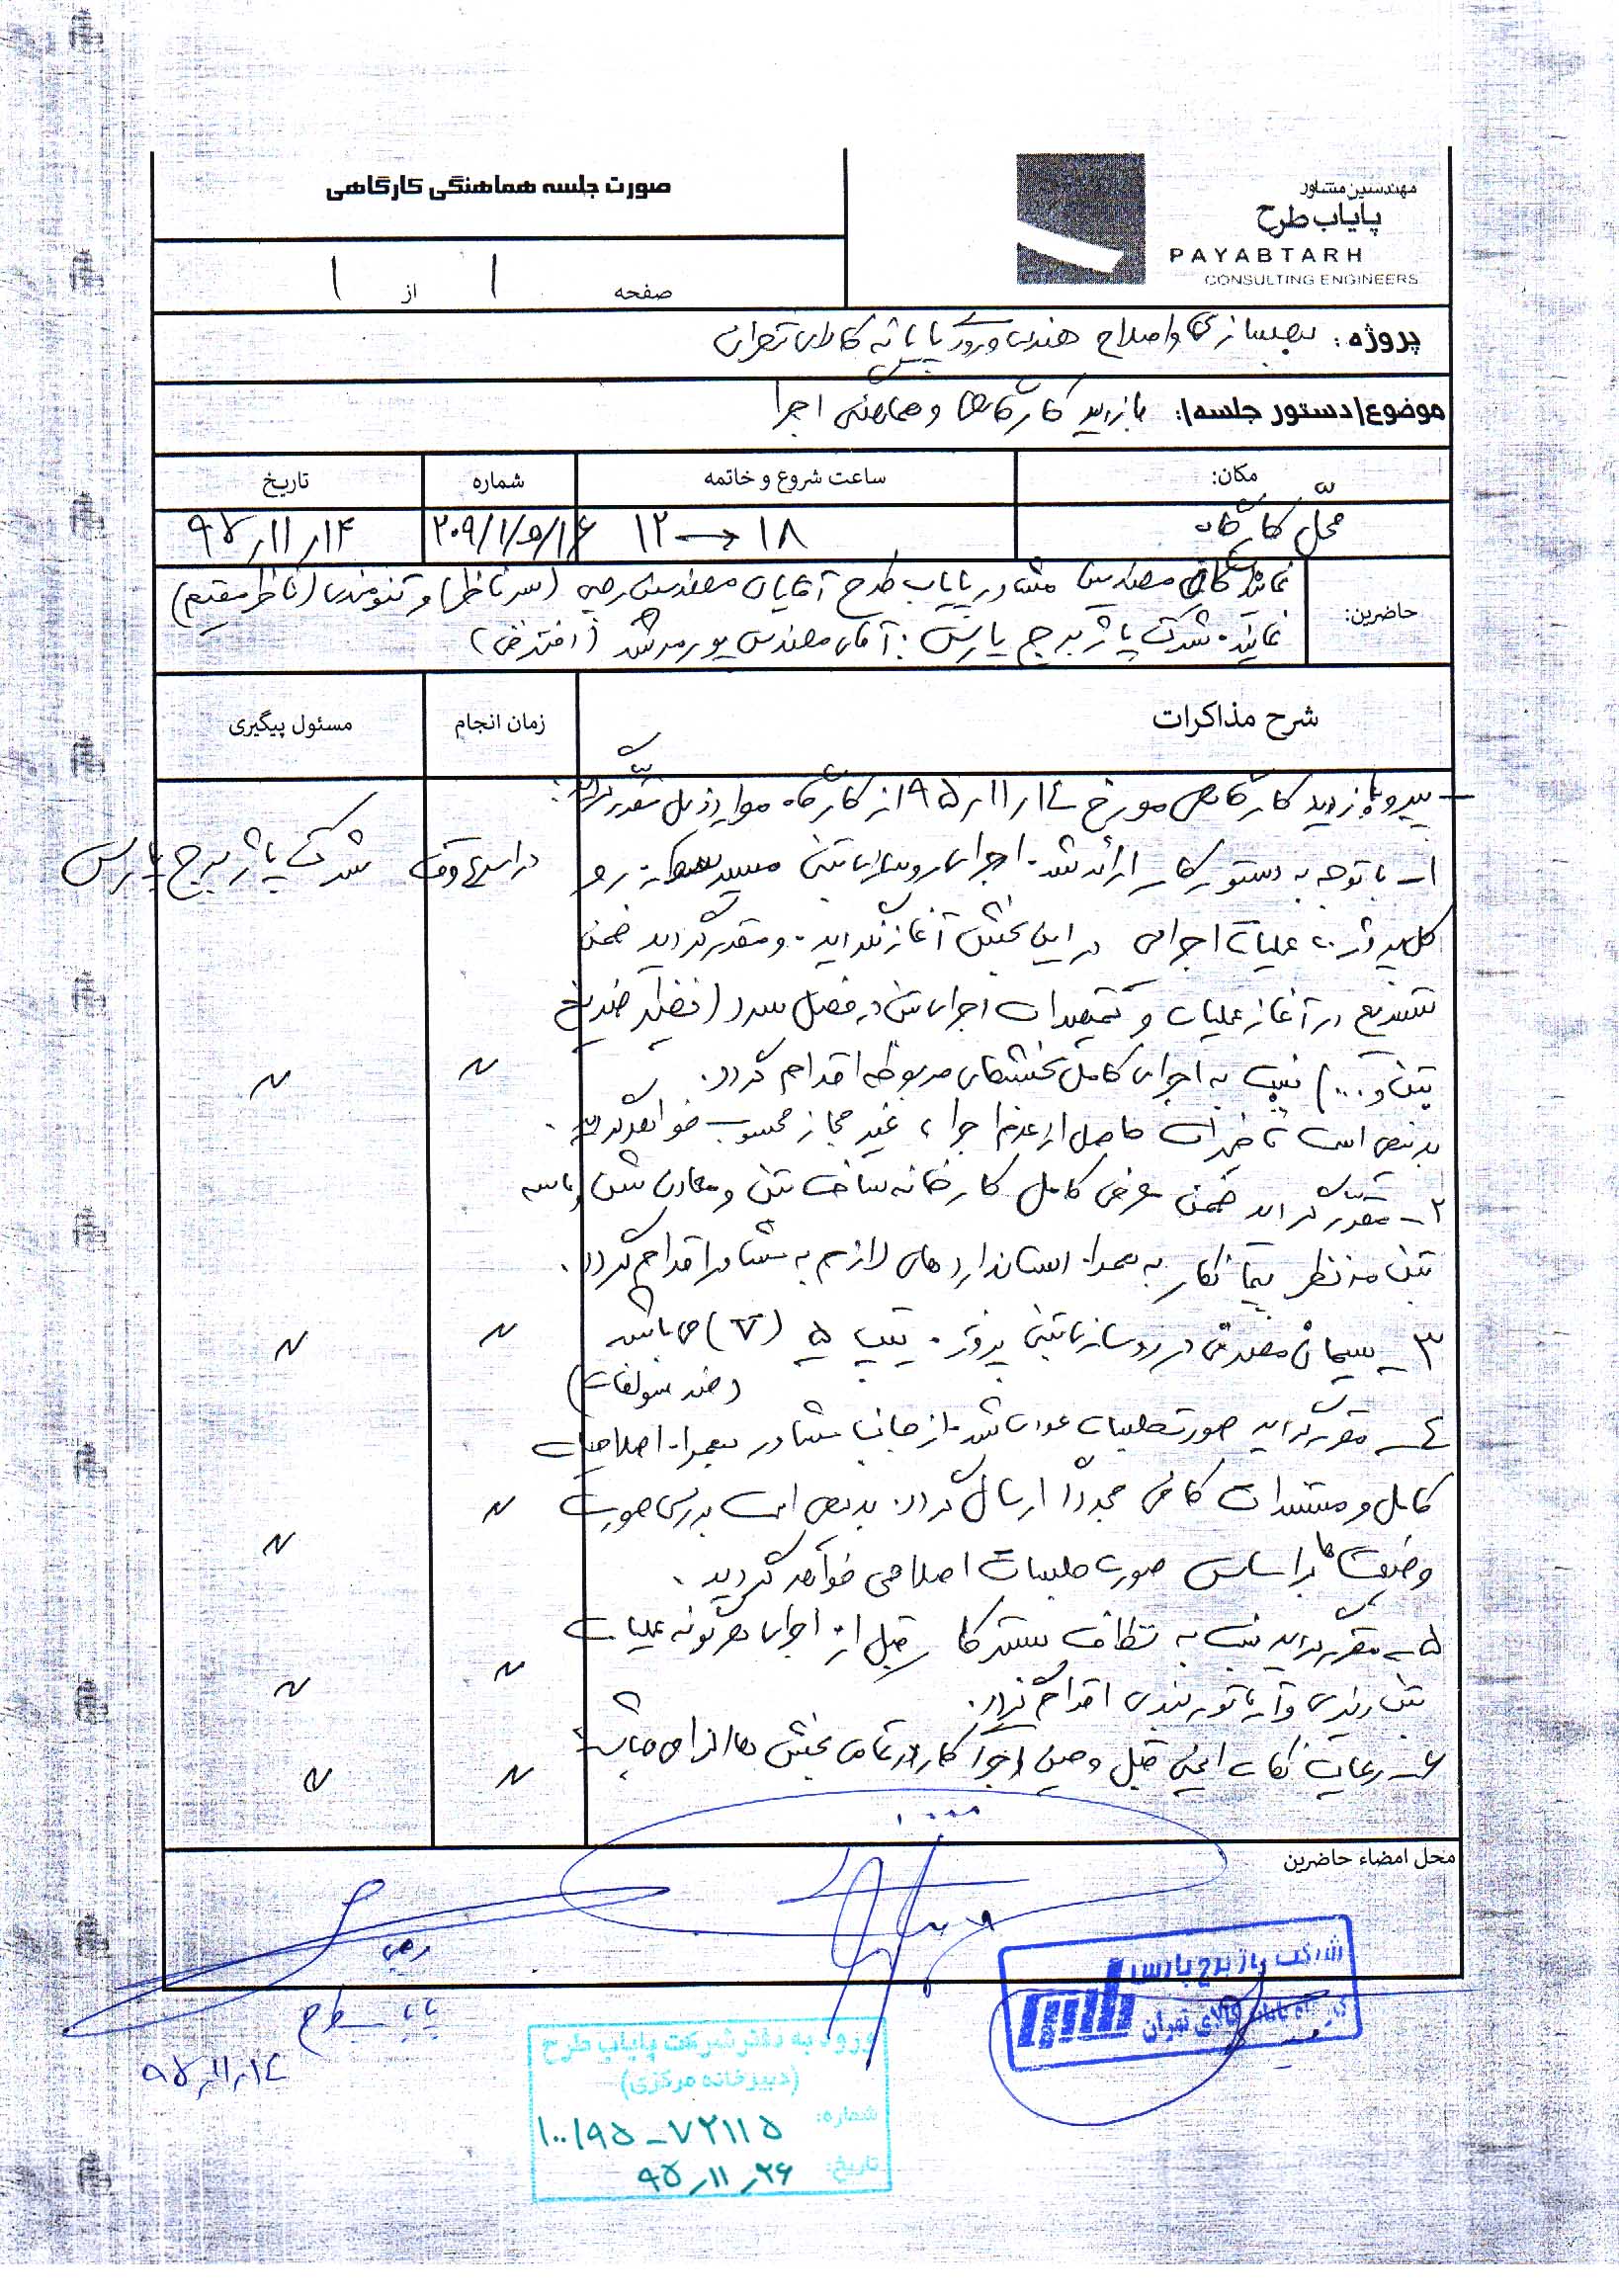 صورت جلسه هماهنگی کارگاهی
مهندسین مشاور
پایاب طرح
PAYABTARH
CONSULTING ENGINEERS
صفحه ۱ از ۱
پروژه: بهسازی و اصلاح هندسی ورودی پایانه کالای تهران
موضوع/دستور جلسه/: بازدید کارگاهی و هماهنگی اجرا
مکان: ساعت شروع و خاتمه شماره تاریخ
محل کارگاه ۱۸ → ۱۲ ۲۰۹/۱/۵/۱۶ ۹۵٫۱۱٫۱۴
حاضرین:
نمایندگان مهندسین مشاور پایاب طرح آقایان مهندسین رجبی (سرناظر) و تنومندی (ناظر مقیم)
نماینده شرکت پاژ برج پارس: آقای مهندس پورمرشد
شرح مذاکرات زمان انجام مسئول پیگیری
- پیرو بازدید کارگاهی مورخ ۹۵٫۱۱٫۱۴ از کارگاه موارد ذیل مقرر گردید:
۱- با توجه به دستور کار ارائه شده اجرای روسازی بتنی مسیر در اسرع وقت شرکت پاژ برج پارس
کل پروژه عملیات اجرایی در این بخش آغاز نگردیده و مقرر گردید ضمن
تسریع در آغاز عملیات و تمهیدات اجرای بتن در فصل سرد (نظیر ضدیخ
بتن و ...) نسبت به اجرای کامل بخشهای مربوطه اقدام گردد. 〃 〃
بدیهی است تاخیرات حاصل از عدم اجرا، غیر مجاز محسوب خواهد گردید.
۲- مقرر گردید ضمن معرفی کامل کارخانه ساخت بتن و معادن شن و ماسه
بتن مد نظر پیمانکار به همراه استانداردهای لازم به مشاور اقدام گردد.
۳- سیمان مصرفی در روسازی بتنی پروژه تیپ ۵ (V) می باشد 〃 〃
(ضد سولفات)
۴- مقرر گردید صورتجلسات عودت شده از جانب مشاور بهمراه اصلاحیات
کامل و مستندات کافی مجدداً ارسال گردد. بدیهی است بررسی صورت 〃 〃
وضعیت ها براساس صورت جلسات اصلاحی خواهد گردید.
۵- مقرر گردید نسبت به نظافت بستر کار قبل از اجرای هرگونه عملیات
بتن ریزی و آرماتوربندی اقدام گردد. 〃 〃
۶- رعایت نکات ایمنی قبل و حین اجرا کار در تمامی بخش ها الزامی میباشد 〃 〃
محل امضاء حاضرین
رجبی
پایاب طرح
۹۵٫۱۱٫۱۴
شرکت پاژ برج پارس
پایانه کالای تهران
ورود به دفتر شرکت پایاب طرح
(دبیرخانه مرکزی)
شماره: ۱۰۰/۹۵-۷۲۱۱۵
تاریخ: ۹۵٫۱۱٫۲۶